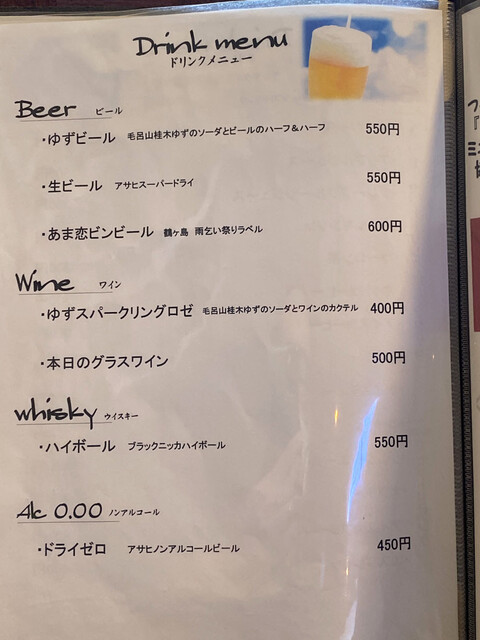 Drink menu
ドリンクメニュー
Beer ビール
・ゆずビール 毛呂山桂木ゆずのソーダとビールのハーフ&ハーフ 550円
・生ビール アサヒスーパードライ 550円
・あま恋ビンビール 鶴ヶ島 雨乞い祭りラベル 600円
Wine ワイン
・ゆずスパークリングロゼ 毛呂山桂木ゆずのソーダとワインのカクテル 400円
・本日のグラスワイン 500円
whisky ウイスキー
・ハイボール ブラックニッカハイボール 550円
Alc 0.00 ノンアルコール
・ドライゼロ アサヒノンアルコールビール 450円